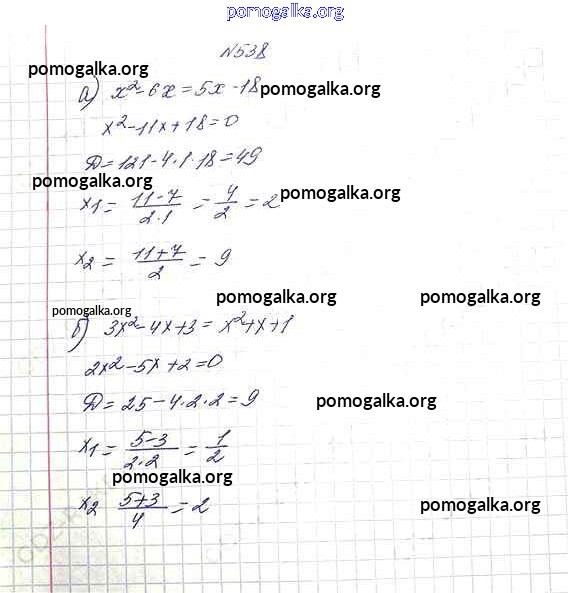 pomogalka.org
№538
pomogalka.org
а) x²-6x=5x-18 pomogalka.org
x²-11x+18=0
Д=121-4·1·18=49
pomogalka.org
x1= (11-7)/(2·1) = 4/2 = 2 pomogalka.org
x2 = (11+7)/2 = 9
pomogalka.org pomogalka.org
pomogalka.org
б) 3x²-4x+3 = x²+x+1
2x²-5x+2=0
Д=25-4·2·2=9 pomogalka.org
x1= (5-3)/(2·2) = 1/2
pomogalka.org
x2 (5+3)/4 = 2 pomogalka.org